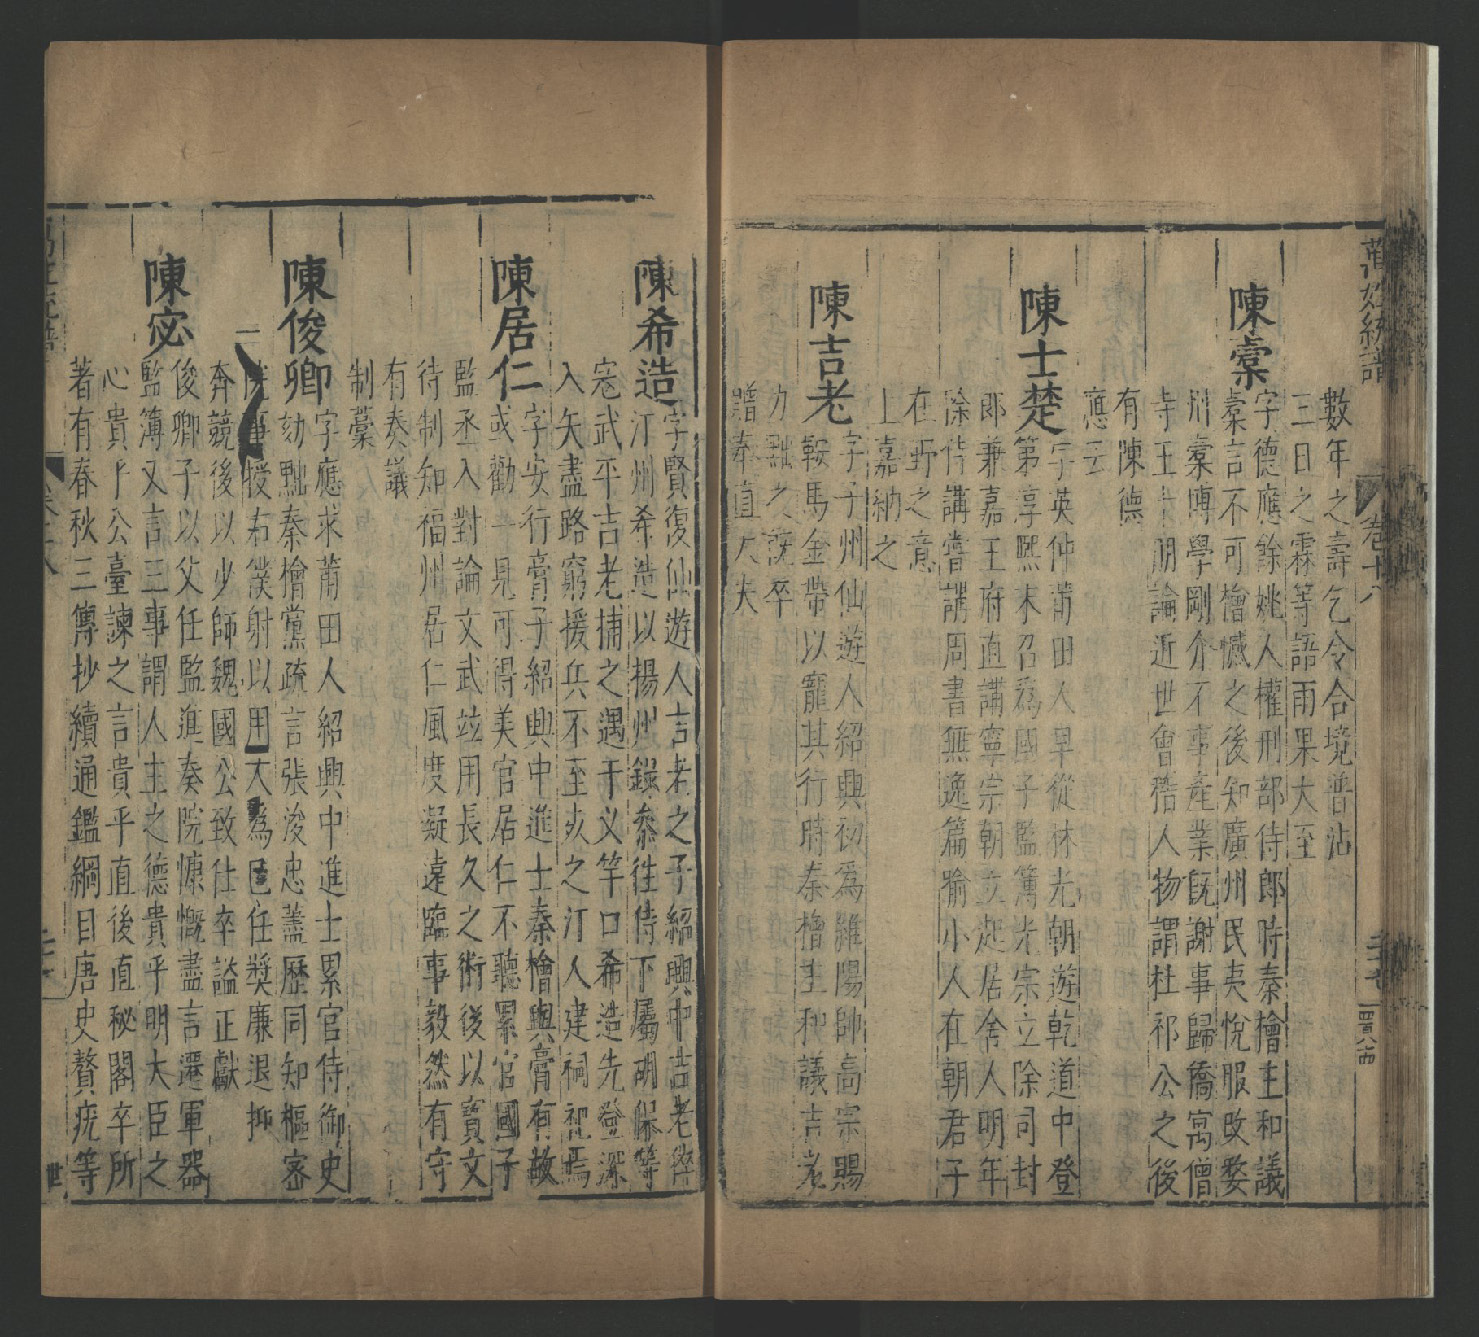 萬姓統譜
卷十八
數年之壽乞令合境普沾
三日之霖等語雨果大至
陳橐
字德應餘姚人權刑部侍郎時秦檜主和議
橐言不可檜憾之後知廣州民夷悅服改婺
州橐博學剛介不事產業既謝事歸僑寓僧
寺王十朋論近世會稽人物謂杜祁公之後
有陳德
應云
陳士楚
字英仲莆田人早從林光朝遊乾道中登
第淳熙末召為國子監簿光宗立除同封
郎兼嘉王府直講寧宗朝立起居舍人明年
除侍講嘗講周書無逸篇喻小人在朝君子
在野之意
上嘉納之
陳吉老
字子州仙遊人紹興初為維陽帥高宗賜
鞍馬金帶以寵其行時秦檜主和議吉老
力詆之既卒
贈奉直大夫
陳希造
字賢復仙遊人吉老之子紹興中吉老帥
汀州希造以揚州錄參往侍下屬胡保等
寇武平吉老捕之遇于义竿口希造先登深
入矢盡路窮援兵不至死之汀人建祠祀焉
陳居仁
字安行膏子紹興中進士秦檜與膏有故
或勸一見可得美官居仁不聽累官國子
監丞入對論文武竝用長久之術後以寶文
待制知福州居仁風度凝遠臨事毅然有守
有奏議
制藳
陳俊卿
字應求莆田人紹興中進士累官侍御史
劾黜秦檜黨疏言張浚忠蓋歷同知樞密
院事授右僕射以用人為己任獎廉退抑
奔競後以少師魏國公致仕卒謚正獻
陳宓
俊卿子以父任監進奏院慷慨盡言遷軍器
監簿又言三事謂人主之德貴乎明大臣之
心貴乎公臺諫之言貴乎直後直秘閣卒所
著有春秋三傳抄續通鑑綱目唐史贅疣等